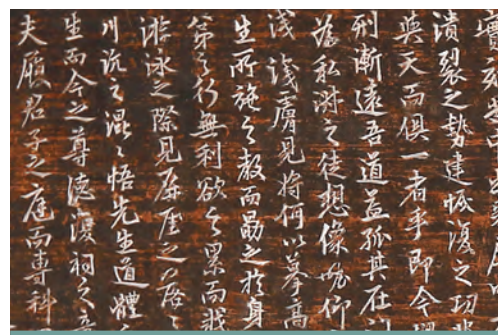 潰裂之勢建恢復之功
與天而俱一者乎即今
刑漸遠吾道益孤其在
為私淑之徒想像仰
淺淺膚見將何以摹高
生所施之教而勖之於身
第之行無利欲之累而我
游泳之際見厓之
川混悟先生道體
生而今之尊德祠之
夫履君子之庭而專科